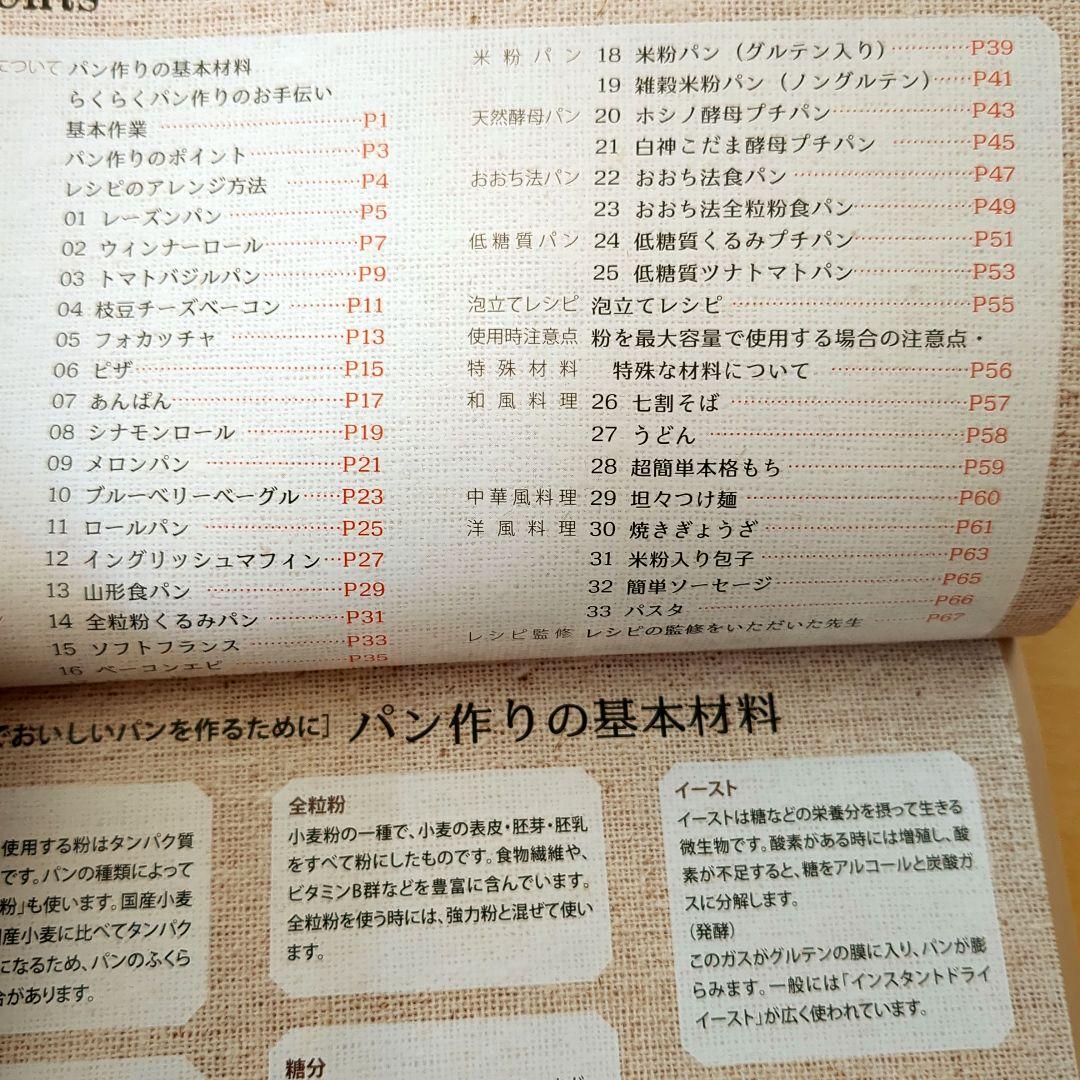 について パン作りの基本材料
らくらくパン作りのお手伝い
基本作業 P1
パン作りのポイント P3
レシピのアレンジ方法 P4
01 レーズンパン P5
02 ウィンナーロール P7
03 トマトバジルパン P9
04 枝豆チーズベーコン P11
05 フォカッチャ P13
06 ピザ P15
07 あんぱん P17
08 シナモンロール P19
09 メロンパン P21
10 ブルーベリーベーグル P23
11 ロールパン P25
12 イングリッシュマフィン P27
13 山形食パン P29
14 全粒粉くるみパン P31
15 ソフトフランス P33
16 ベーコンエピ P35
米粉パン 18 米粉パン（グルテン入り） P39
19 雑穀米粉パン（ノングルテン） P41
天然酵母パン 20 ホシノ酵母プチパン P43
21 白神こだま酵母プチパン P45
おおち法パン 22 おおち法食パン P47
23 おおち法全粒粉食パン P49
低糖質パン 24 低糖質くるみプチパン P51
25 低糖質ツナトマトパン P53
泡立てレシピ 泡立てレシピ P55
使用時注意点 粉を最大容量で使用する場合の注意点・
特殊材料 特殊な材料について P56
和風料理 26 七割そば P57
27 うどん P58
28 超簡単本格もち P59
中華風料理 29 坦々つけ麺 P60
洋風料理 30 焼きぎょうざ P61
31 米粉入り包子 P63
32 簡単ソーセージ P65
33 パスタ P66
レシピ監修 レシピの監修をいただいた先生 P67
でおいしいパンを作るために］ パン作りの基本材料
使用する粉はタンパク質
です。パンの種類によって
粉」も使います。国産小麦
産小麦に比べてタンパク
になるため、パンのふくら
合があります。
全粒粉
小麦粉の一種で、小麦の表皮・胚芽・胚乳
をすべて粉にしたものです。食物繊維や、
ビタミンB群などを豊富に含んでいます。
全粒粉を使う時には、強力粉と混ぜて使い
ます。
糖分
イースト
イーストは糖などの栄養分を摂って生きる
微生物です。酸素がある時には増殖し、酸
素が不足すると、糖をアルコールと炭酸ガ
スに分解します。
（発酵）
このガスがグルテンの膜に入り、パンが膨
らみます。一般には「インスタントドライ
イースト」が広く使われています。